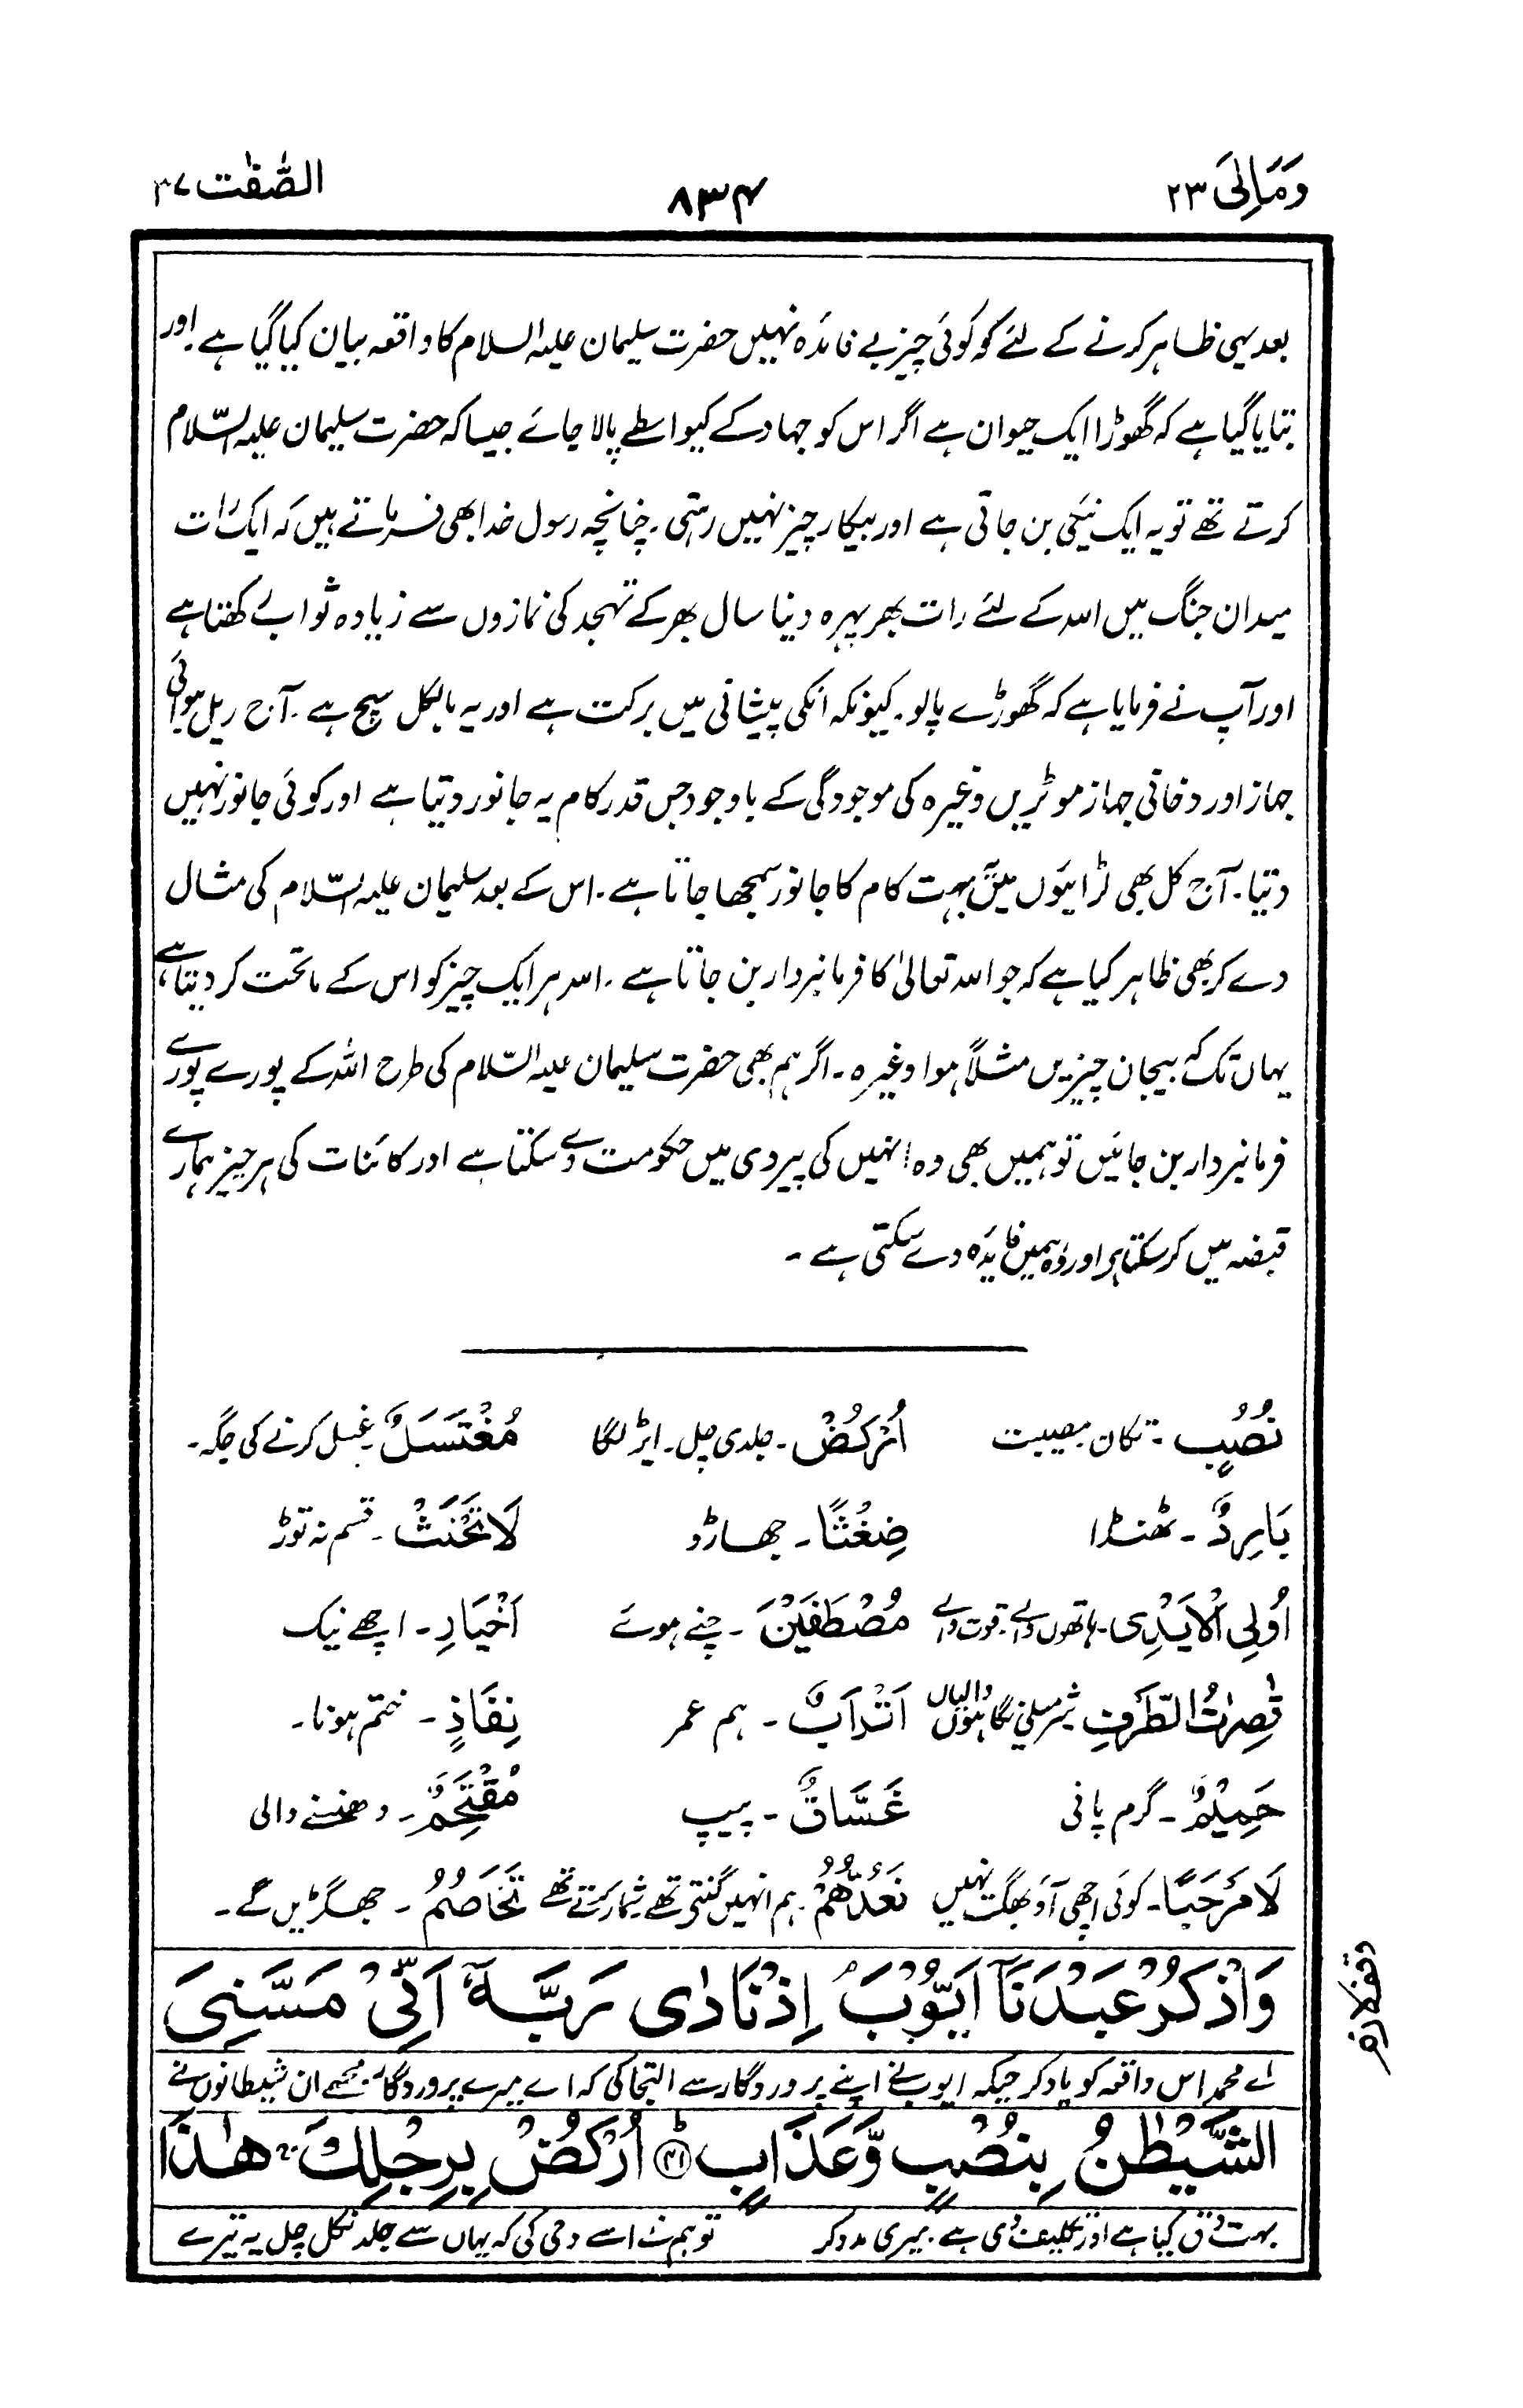 وَمَالِیَ ۲۳
۸۳۴
الصّٰفّٰت ۳۷
بعد یہی ظاہر کرنے کے لئے کہ کوئی چیز بے فائدہ نہیں حضرت سلیمان علیہ السلام کا واقعہ بیان کیا گیا ہے اور
بتایا گیا ہے کہ گھوڑا ایک حیوان ہے اگر اس کو جہاد کے کیواسطے پالا جائے جیسا کہ حضرت سلیمان علیہ السّلام
کرتے تھے تو یہ ایک نیکی بن جاتی ہے اور بیکار چیز نہیں رہتی۔ چنانچہ رسول خدا بھی فرماتے ہیں کہ ایک رات
میدان جنگ میں اللہ کے لئے رات بھر پہرہ دینا سال بھر کے تہجد کی نمازوں سے زیادہ ثواب رکھتا ہے
اور آپ نے فرمایا ہے کہ گھوڑے پالو۔ کیونکہ انکی پیشانی میں برکت ہے اور یہ بالکل سچ ہے۔ آج ریل ہوائی
جہاز اور دخانی جہاز موٹریں وغیرہ کی موجودگی کے باوجود جس قدر کام یہ جانور دیتا ہے اور کوئی جانور نہیں
دیتا۔ آج کل بھی لڑائیوں میں یہ بہت کام کا جانور سمجھا جاتا ہے۔ اس کے بعد سلیمان علیہ السّلام کی مثال
دے کر بھی ظاہر کیا ہے کہ جو اللہ تعالیٰ کا فرمانبردار بن جاتا ہے۔ اللہ ہر ایک چیز کو اس کے ماتحت کر دیتا ہے،
یہاں تک کہ بیجان چیزیں مثلاً ہوا وغیرہ۔ اگر ہم بھی حضرت سلیمان علیہ السّلام کی طرح اللہ کے پورے پورے
فرمانبردار بن جائیں تو ہمیں بھی وہ انہیں کی پیروی میں حکومت دے سکتا ہے اور کائنات کی ہر چیز ہمارے
قبضہ میں کر سکتا ہے اور وہ ہمیں فایدہ دے سکتی ہے۔
نُصُبٍ۔ تکان مصیبت اُرْكُضْ۔ جلدی چل۔ ایڑ لگا مُغْتَسَلٌ۔ غسل کرنے کی جگہ۔
بَارِدٌ۔ ٹھنڈا ضِغْثًا۔ جھاڑو لَاتَحْنَثْ۔ قسم نہ توڑ
اُولِی الْاَیْدِی۔ ہاتھوں والے۔ قوت والے مُصْطَفَیْنَ۔ چنے ہوئے اَخْیَارِ۔ اچھے نیک
قٰصِرٰتُ الطَّرْفِ شرمیلی نگاہوں والیاں اَتْرَابٌ۔ ہم عمر نِفَاذٍ۔ ختم ہونا۔
حَمِیْمٌ۔ گرم پانی غَسَّاقٌ۔ پیپ مُقْتَحِمٌ۔ دھنسنے والی
لَا مَرْحَبًا۔ کوئی اچھی آؤ بھگت نہیں نَعُدُّهُمْ۔ ہم انہیں گنتے تھے شمار کرتے تھے تَخَاصُمُ۔ جھگڑیں گے۔
وَاذْكُرْ عَبْدَنَآ اَیُّوْبَ ۘ اِذْ نَادٰی رَبَّهٗۤ اَنِّیْ مَسَّنِیَ
وقف لازم
اے محمد اس واقعہ کو یاد کر جبکہ ایوب نے اپنے پروردگار سے التجا کی کہ اے میرے پروردگار مجھے ان شیطانوں نے
الشَّیْطٰنُ بِنُصْبٍ وَّعَذَابٍ ؕ ۴۱ اُرْكُضْ بِرِجْلِكَ ۚ هٰذَا
بہت دق کیا ہے اور تکلیف دی ہے۔ میری مدد کر تو ہم نے اسے وحی کی کہ یہاں سے جلد نکل چل یہ تیرے